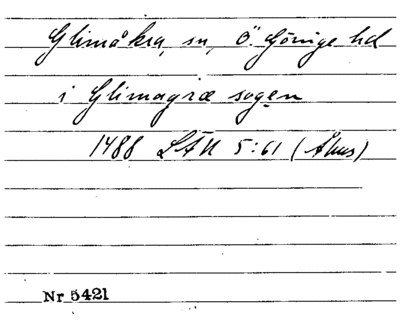 Glimåkra, sn, Ö. Göinge hd
i Glimagræ sogen
1488 LÄU 5:61 (Åhus)
Nr 5421